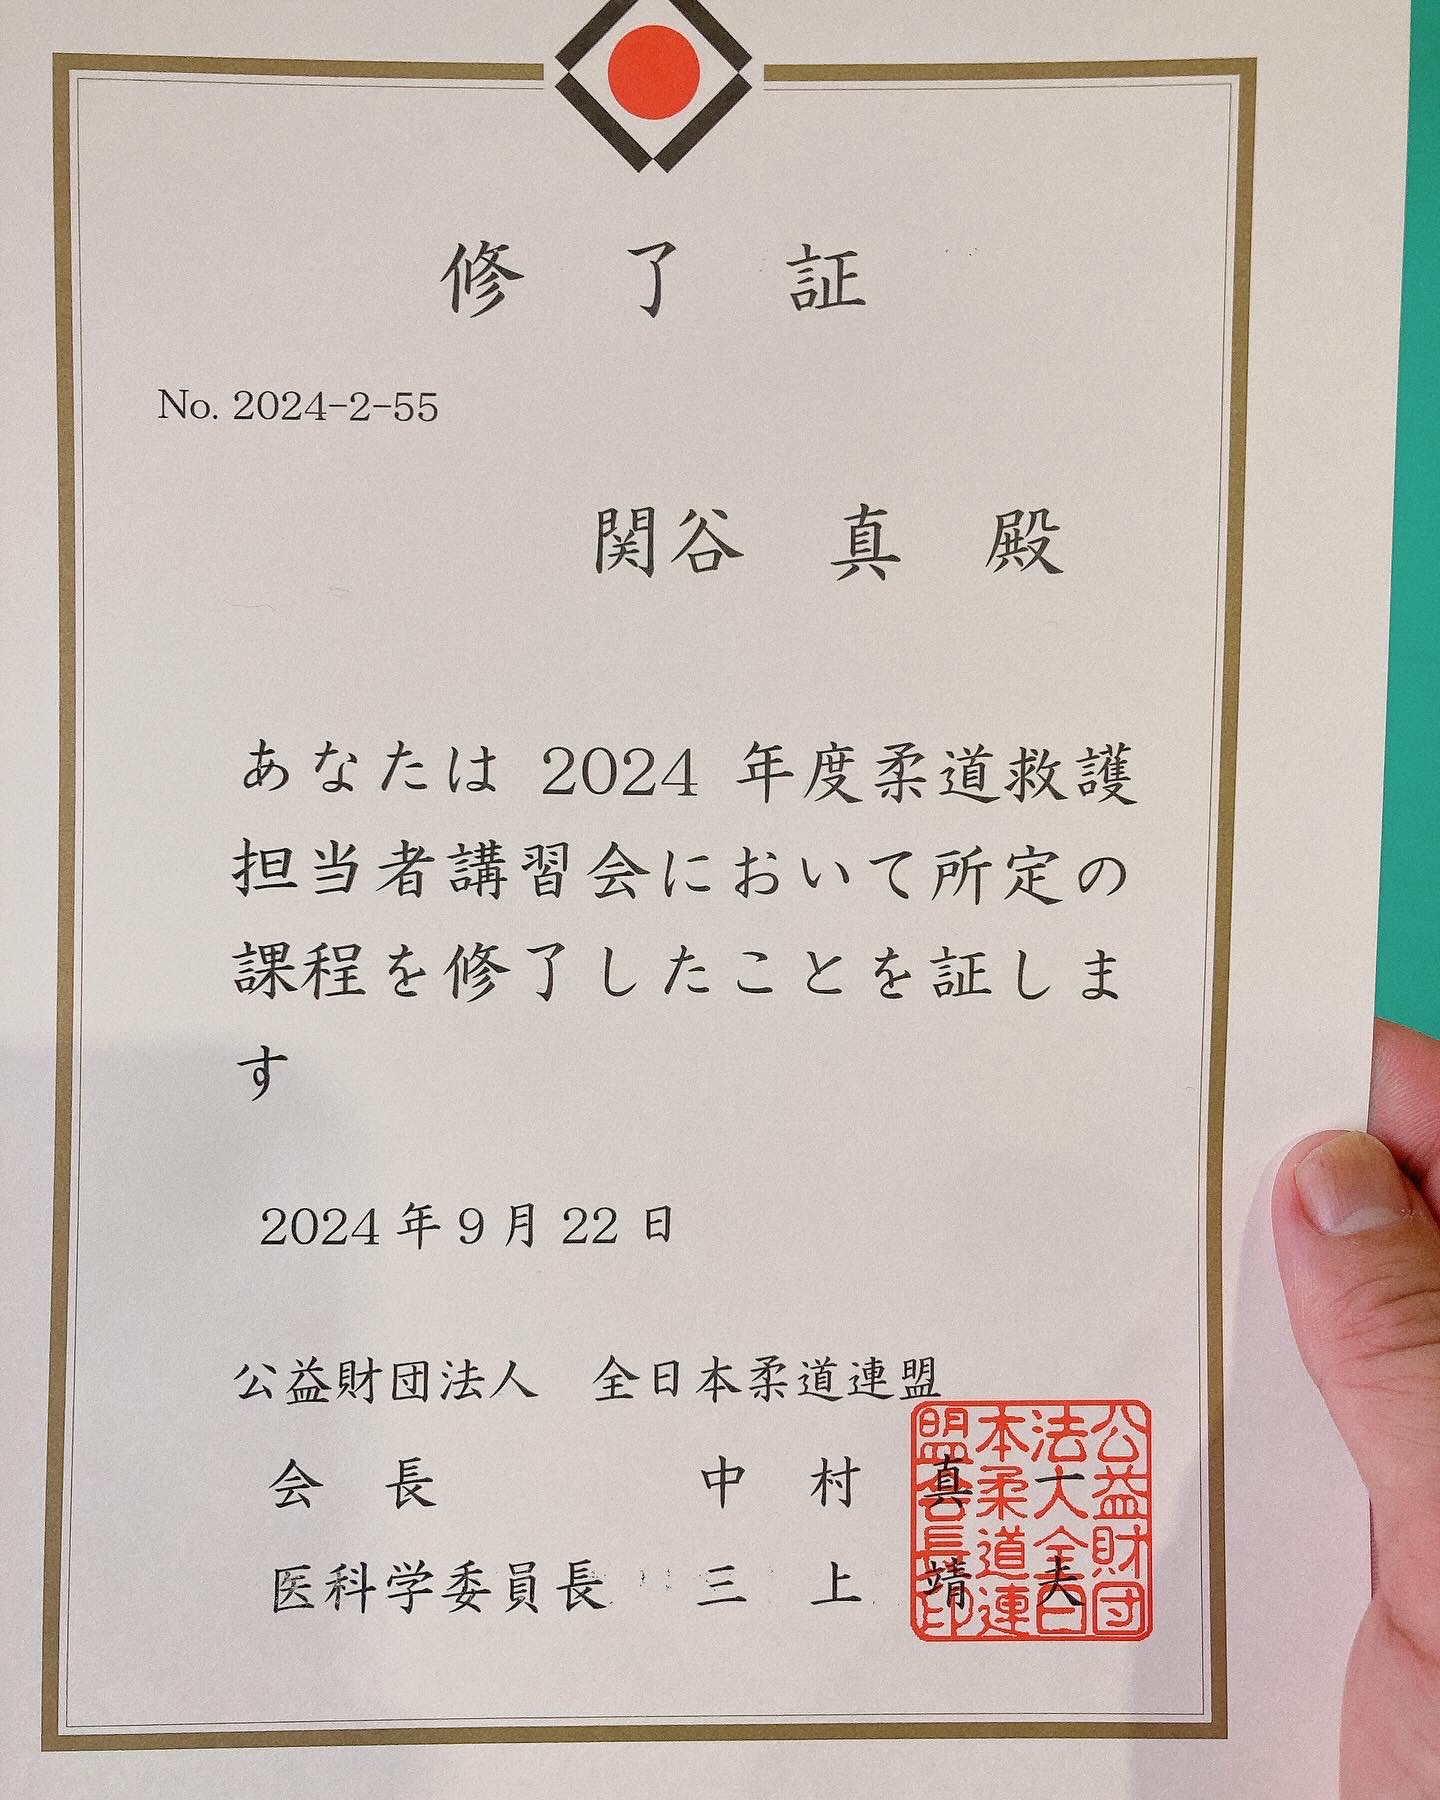 修了証
No. 2024-2-55
関谷 真 殿
あなたは 2024 年度柔道救護
担当者講習会において所定の
課程を修了したことを証しま
す
2024 年 9 月 22 日
公益財団法人 全日本柔道連盟
会長 中村 真一
医科学委員長 三上 靖夫
公益財団
法人全日
本柔道連
盟会長印